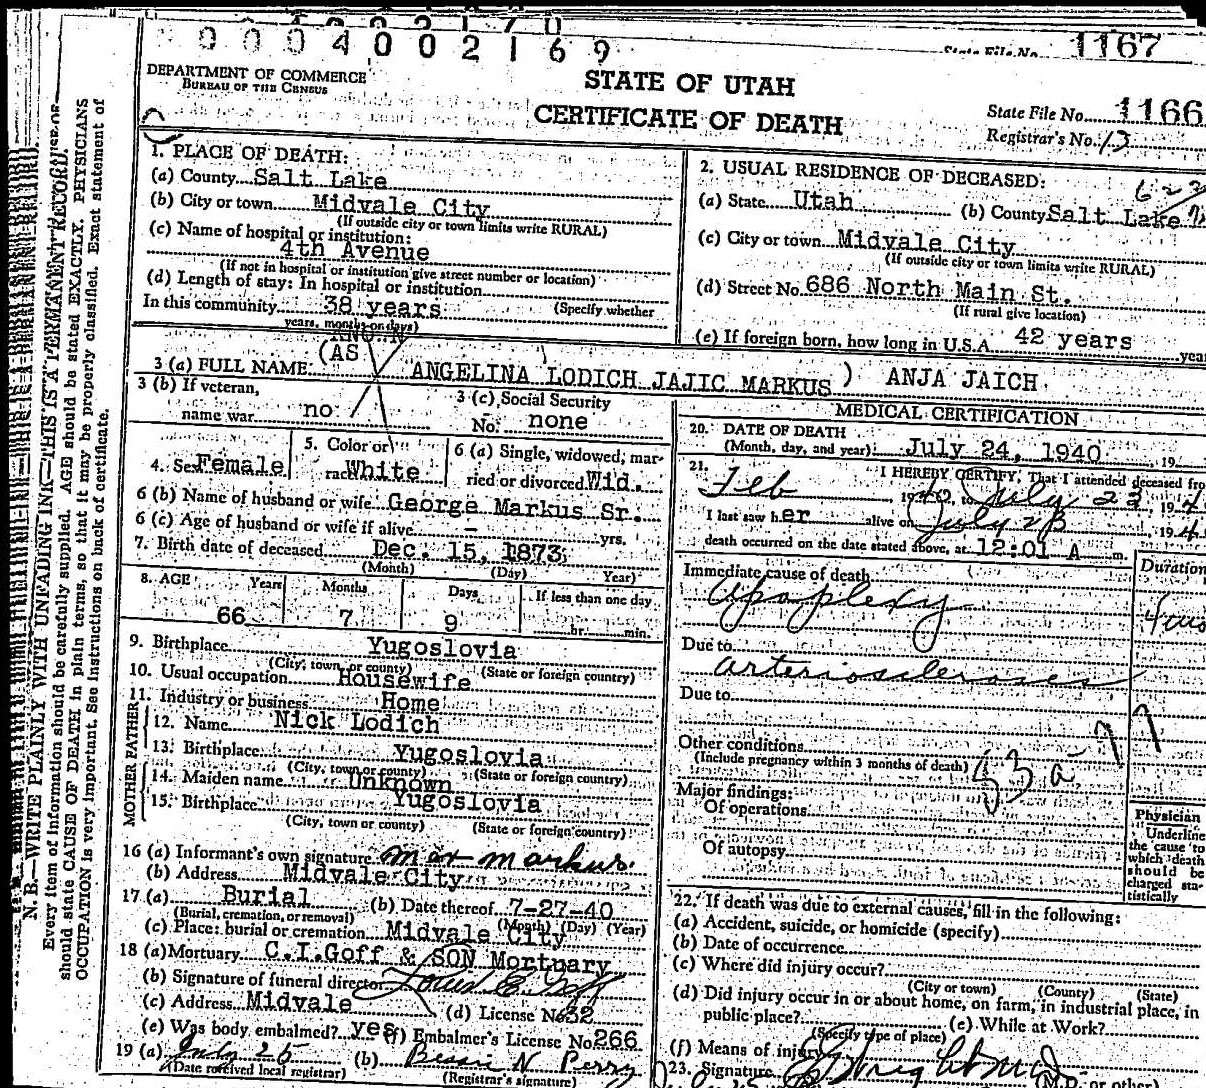 0 0 0 4 0 0 2 1 6 9
State File No. 1167
DEPARTMENT OF COMMERCE
BUREAU OF THE CENSUS
STATE OF UTAH
CERTIFICATE OF DEATH
State File No. 1166
Registrar's No. 13
1. PLACE OF DEATH:
(a) County Salt Lake
(b) City or town Midvale City
(If outside city or town limits write RURAL)
(c) Name of hospital or institution:
4th Avenue
(If not in hospital or institution give street number or location)
(d) Length of stay: In hospital or institution
(Specify whether
In this community 38 years
years, months or days)
2. USUAL RESIDENCE OF DECEASED:
(a) State Utah (b) County Salt Lake
(c) City or town Midvale City
(If outside city or town limits write RURAL)
(d) Street No. 686 North Main St.
(If rural give location)
(e) If foreign born, how long in U.S.A. 42 years
3 (a) FULL NAME (AS ANGELINA LODICH JAJIC MARKUS) ANJA JAICH
3 (b) If veteran,
name war no
3 (c) Social Security
No. none
4. Sex Female
5. Color or
race White
6 (a) Single, widowed, mar-
ried or divorced Wid.
6 (b) Name of husband or wife George Markus Sr.
6 (c) Age of husband or wife if alive - yrs.
7. Birth date of deceased Dec. 15, 1873
(Month) (Day) Year)
8. AGE Years Months Days If less than one day
66 7 9 hr. min.
9. Birthplace Yugoslovia
(City, town, or county) (State or foreign country)
10. Usual occupation Housewife
11. Industry or business Home
FATHER
12. Name Nick Lodich
13. Birthplace Yugoslovia
(City, town or county) (State or foreign country)
MOTHER
14. Maiden name Unknown
15. Birthplace Yugoslovia
(City, town or county) (State or foreign country)
16 (a) Informant's own signature Max Markus
(b) Address Midvale City
17 (a) Burial (b) Date thereof 7-27-40
(Burial, cremation, or removal) (Month) (Day) (Year)
(c) Place: burial or cremation Midvale City
18 (a) Mortuary C.I.Goff & SON Mortuary
(b) Signature of funeral director Louis E. Goff
(c) Address Midvale (d) License No. 32
(e) Was body embalmed? yes (f) Embalmer's License No. 266
19 (a) July 25 (b) Bessie N Perry
(Date received local registrar) (Registrar's signature)
MEDICAL CERTIFICATION
20. DATE OF DEATH
(Month, day, and year) July 24, 1940 19
21. I HEREBY CERTIFY, That I attended deceased fro
Feb 1940, to July 23, 194
I last saw her alive on July 23 194
death occurred on the date stated above, at 12:01 A m.
Immediate cause of death
Duration
Apoplexy
Due to
arteriosclerosis
Due to
Other conditions
(Include pregnancy within 3 months of death)
83 a
Major findings:
Of operations
Of autopsy
Physician
Underline
the cause to
which death
should be
charged sta-
tistically
22. If death was due to external causes, fill in the following:
(a) Accident, suicide, or homicide (specify)
(b) Date of occurrence
(c) Where did injury occur?
(City or town) (County) (State)
(d) Did injury occur in or about home, on farm, in industrial place, in
public place? (e) While at Work?
(Specify type of place)
(f) Means of injury
23. Signature
N. B.—WRITE PLAINLY WITH UNFADING INK—THIS IS A PERMANENT RECORD.
Every item of information should be carefully supplied. AGE should be stated EXACTLY. PHYSICIANS
should state CAUSE OF DEATH in plain terms, so that it may be properly classified. Exact statement of
OCCUPATION is very important. See instructions on back of certificate.